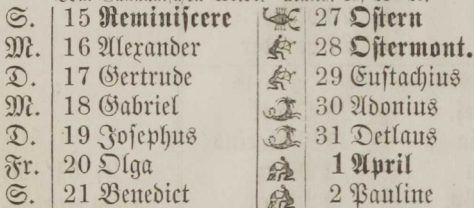 S. 15 Reminiſcere 27 Oſtern
M. 16 Alexander 28 Oſtermont.
D. 17 Gertrude 29 Euſtachius
M. 18 Gabriel 30 Adonius
D. 19 Joſephus 31 Detlaus
Fr. 20 Olga 1 April
S. 21 Benedict 2 Pauline